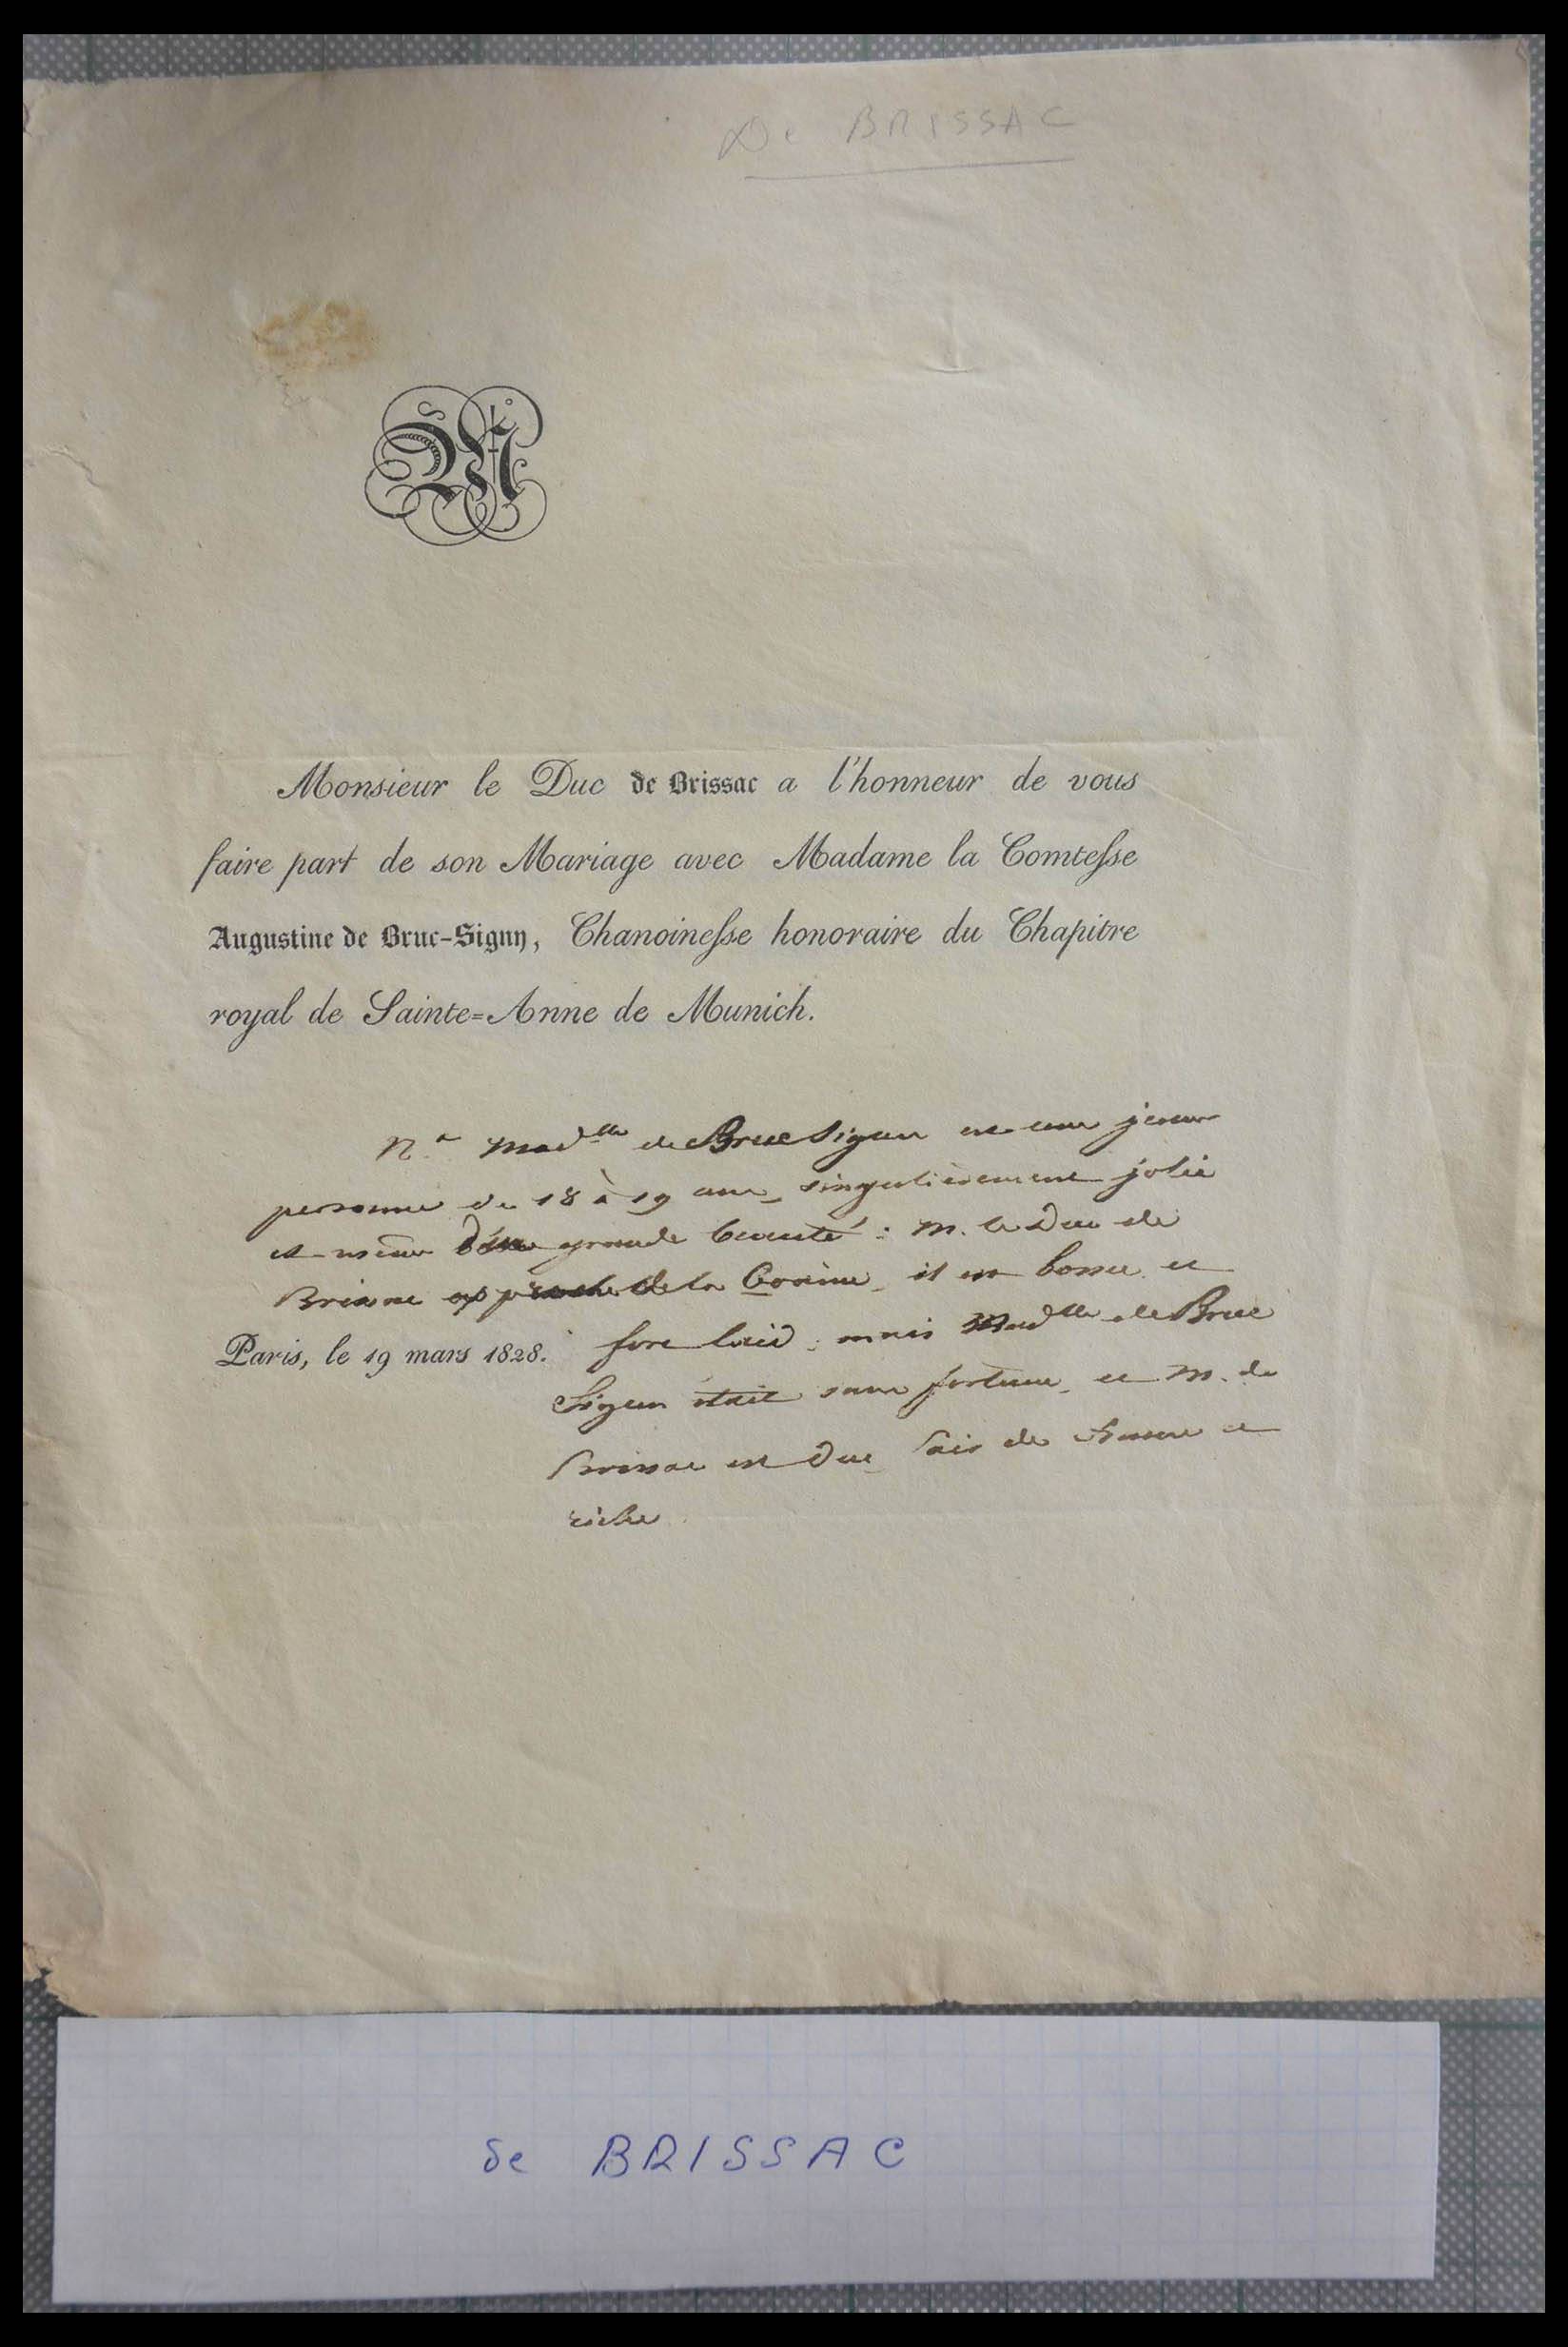 De BRISSAC
Monsieur le Duc de Brissac a l'honneur de vous
faire part de son Mariage avec Madame la Comtesse
Augustine de Bruc-Signy, Chanoinesse honoraire du Chapitre
royal de Sainte=Anne de Munich.
Na Madlle de Bruc Signu est une jeune
personne de 18 à 19 ans, singulièrement jolie
et même d'une grande beauté : M. le Duc de
Brissac approche de la il est bossu et
Paris, le 19 mars 1828.
fort laid ; mais Madlle de Bruc
Signu était sans fortune, et M. de
Brissac est Duc, Pair de France et
riche
de BRISSAC